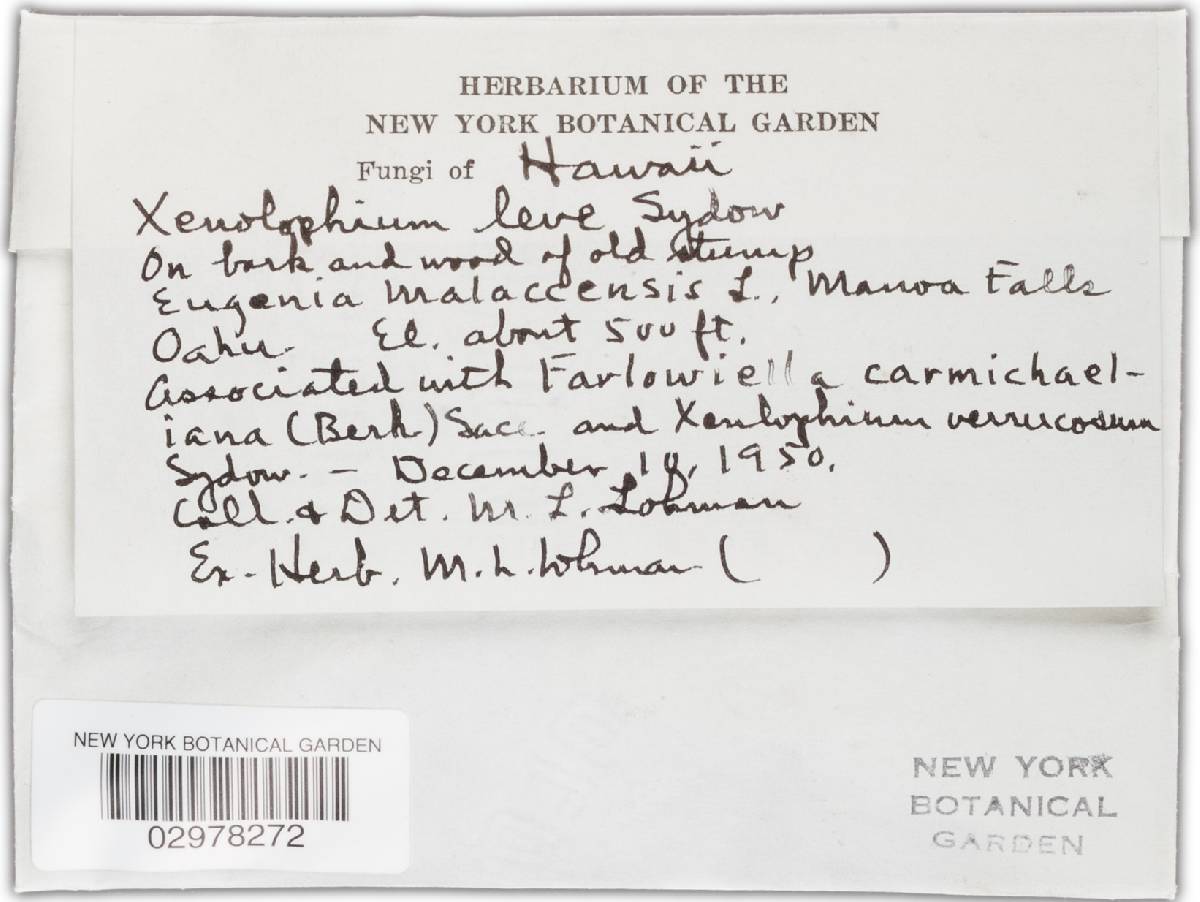 HERBARIUM OF THE
NEW YORK BOTANICAL GARDEN
Fungi of Hawaii
Xenolophium leve Sydow
On bark and wood of old stump
Eugenia malaccensis L., Manoa Falls
Oahu. El. about 500 ft.
Associated with Farlowiella carmichael-
iana (Berk) Sacc. and Xenlophium verrucosum
Sydow. - December 10, 1950.
Coll. & Det. M. L. Lohman
Ex-Herb. M.L. Lohman ( )
NEW YORK BOTANICAL GARDEN
02978272
NEW YORK
BOTANICAL
GARDEN